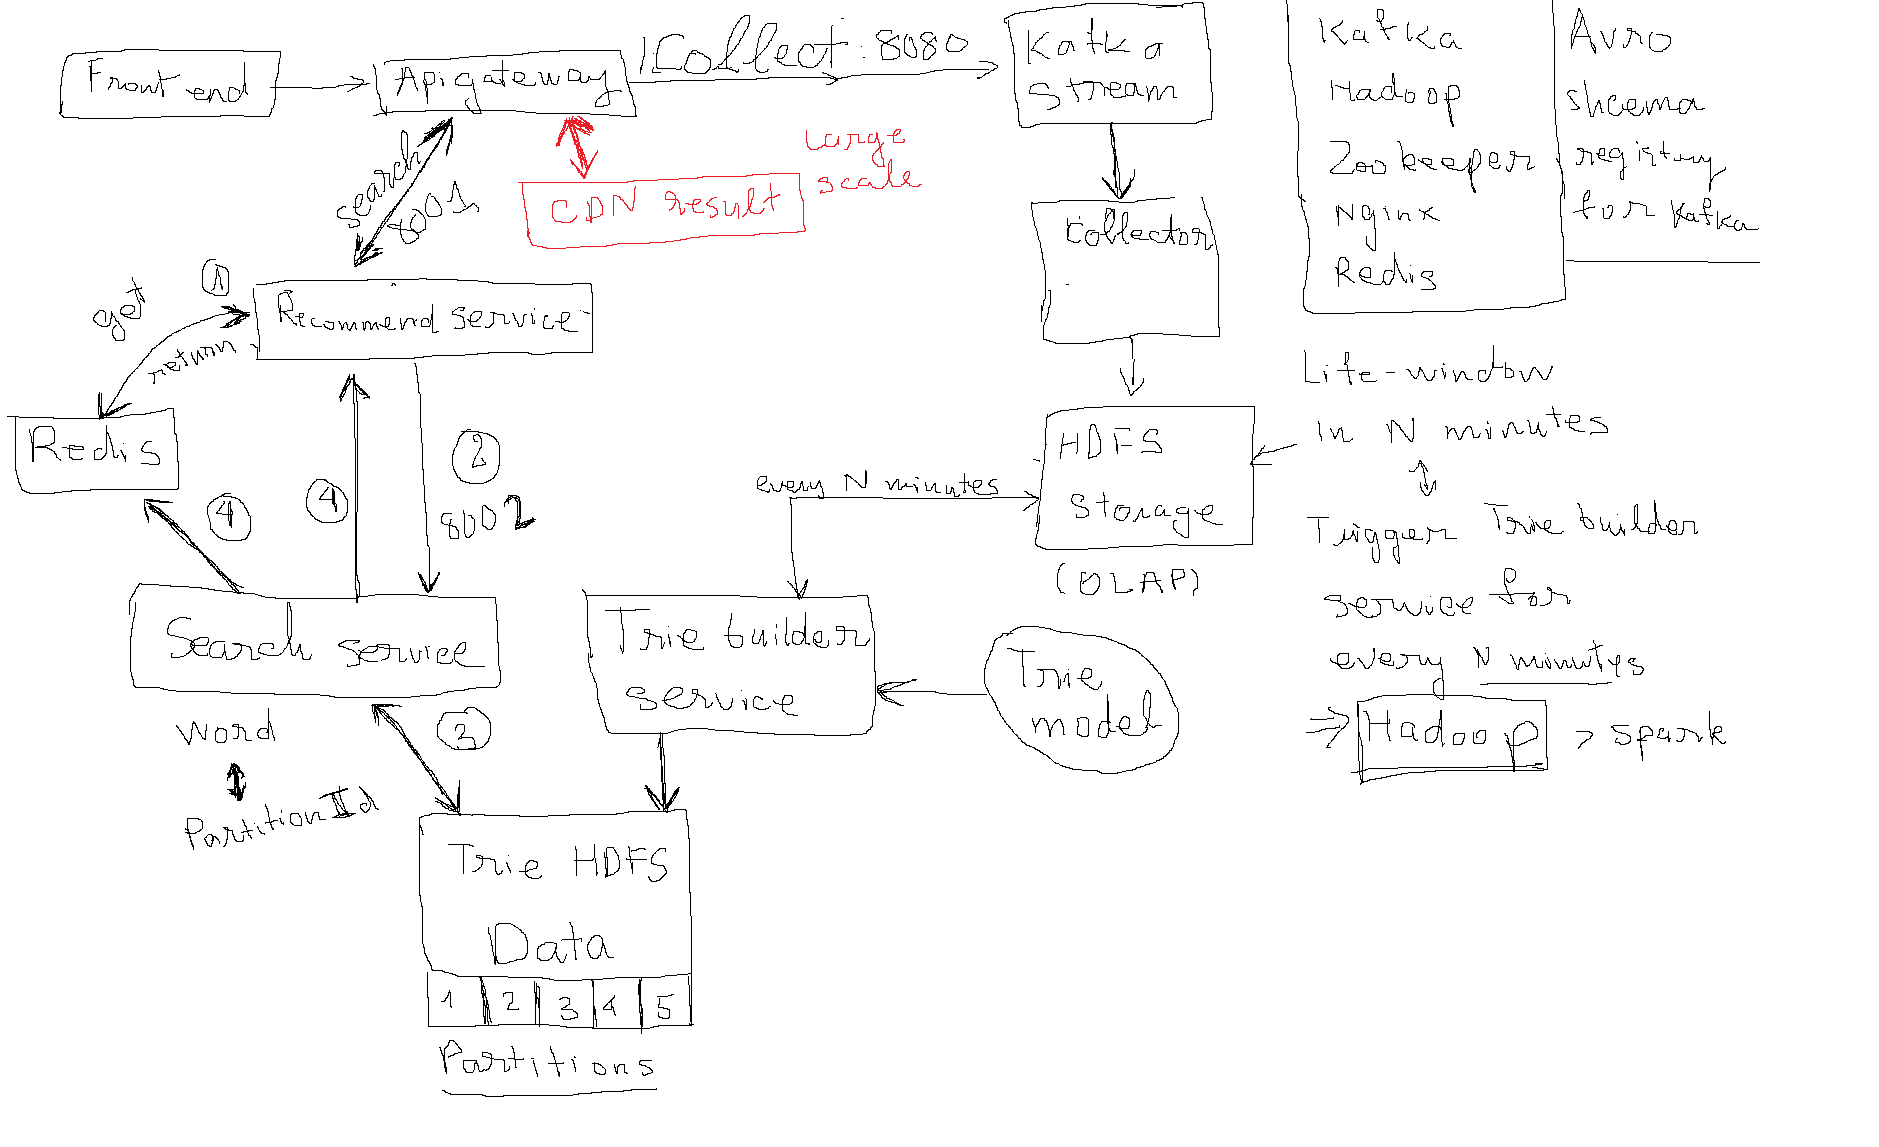 Front end
Api gateway
/Collect : 8080
Kafka
stream
Kafka
Hadoop
Zookeeper
Nginx
Redis
Avro
shcema
registry
for Kafka
search
8001
CDN result
Large
scale
Collector
get
1
return
Recommend service
Redis
Life-window
in N minutes
HDFS
Storage
(OLAP)
every N minutes
2
8002
4
4
Trigger Trie builder
service for
every N minutes
⇒ Hadoop > spark
Search service
Trie builder
service
Trie
model
word
PartitionId
3
Trie HDFS
Data
1 2 3 4 5
Partitions